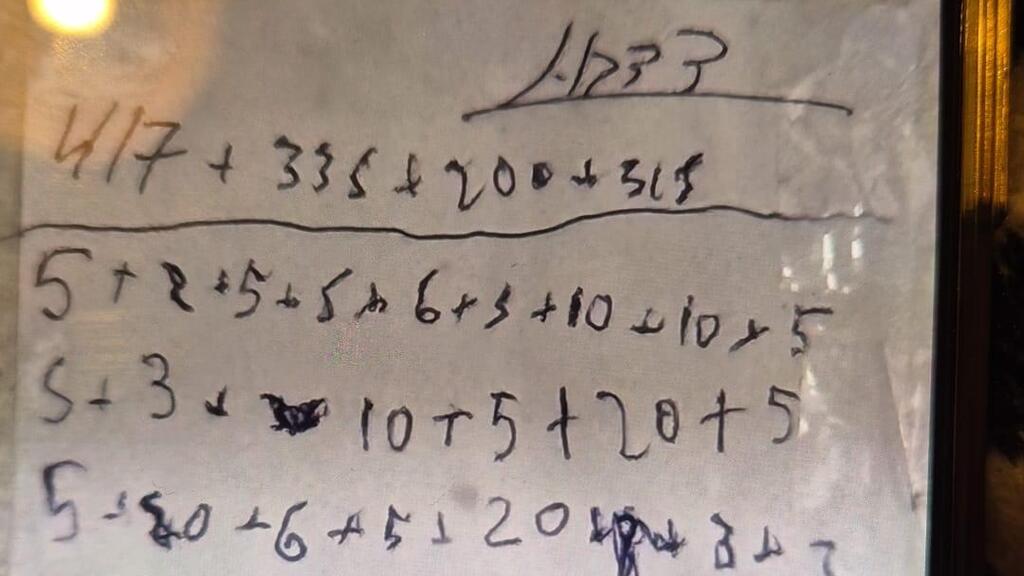 417 + 335 + 200 + 315
5 + 2 + 5 + 5 + 6 + 5 + 10 + 10 + 5
5 + 3 + 10 + 5 + 20 + 5
5 + 20 + 6 + 5 + 20 + 3 +